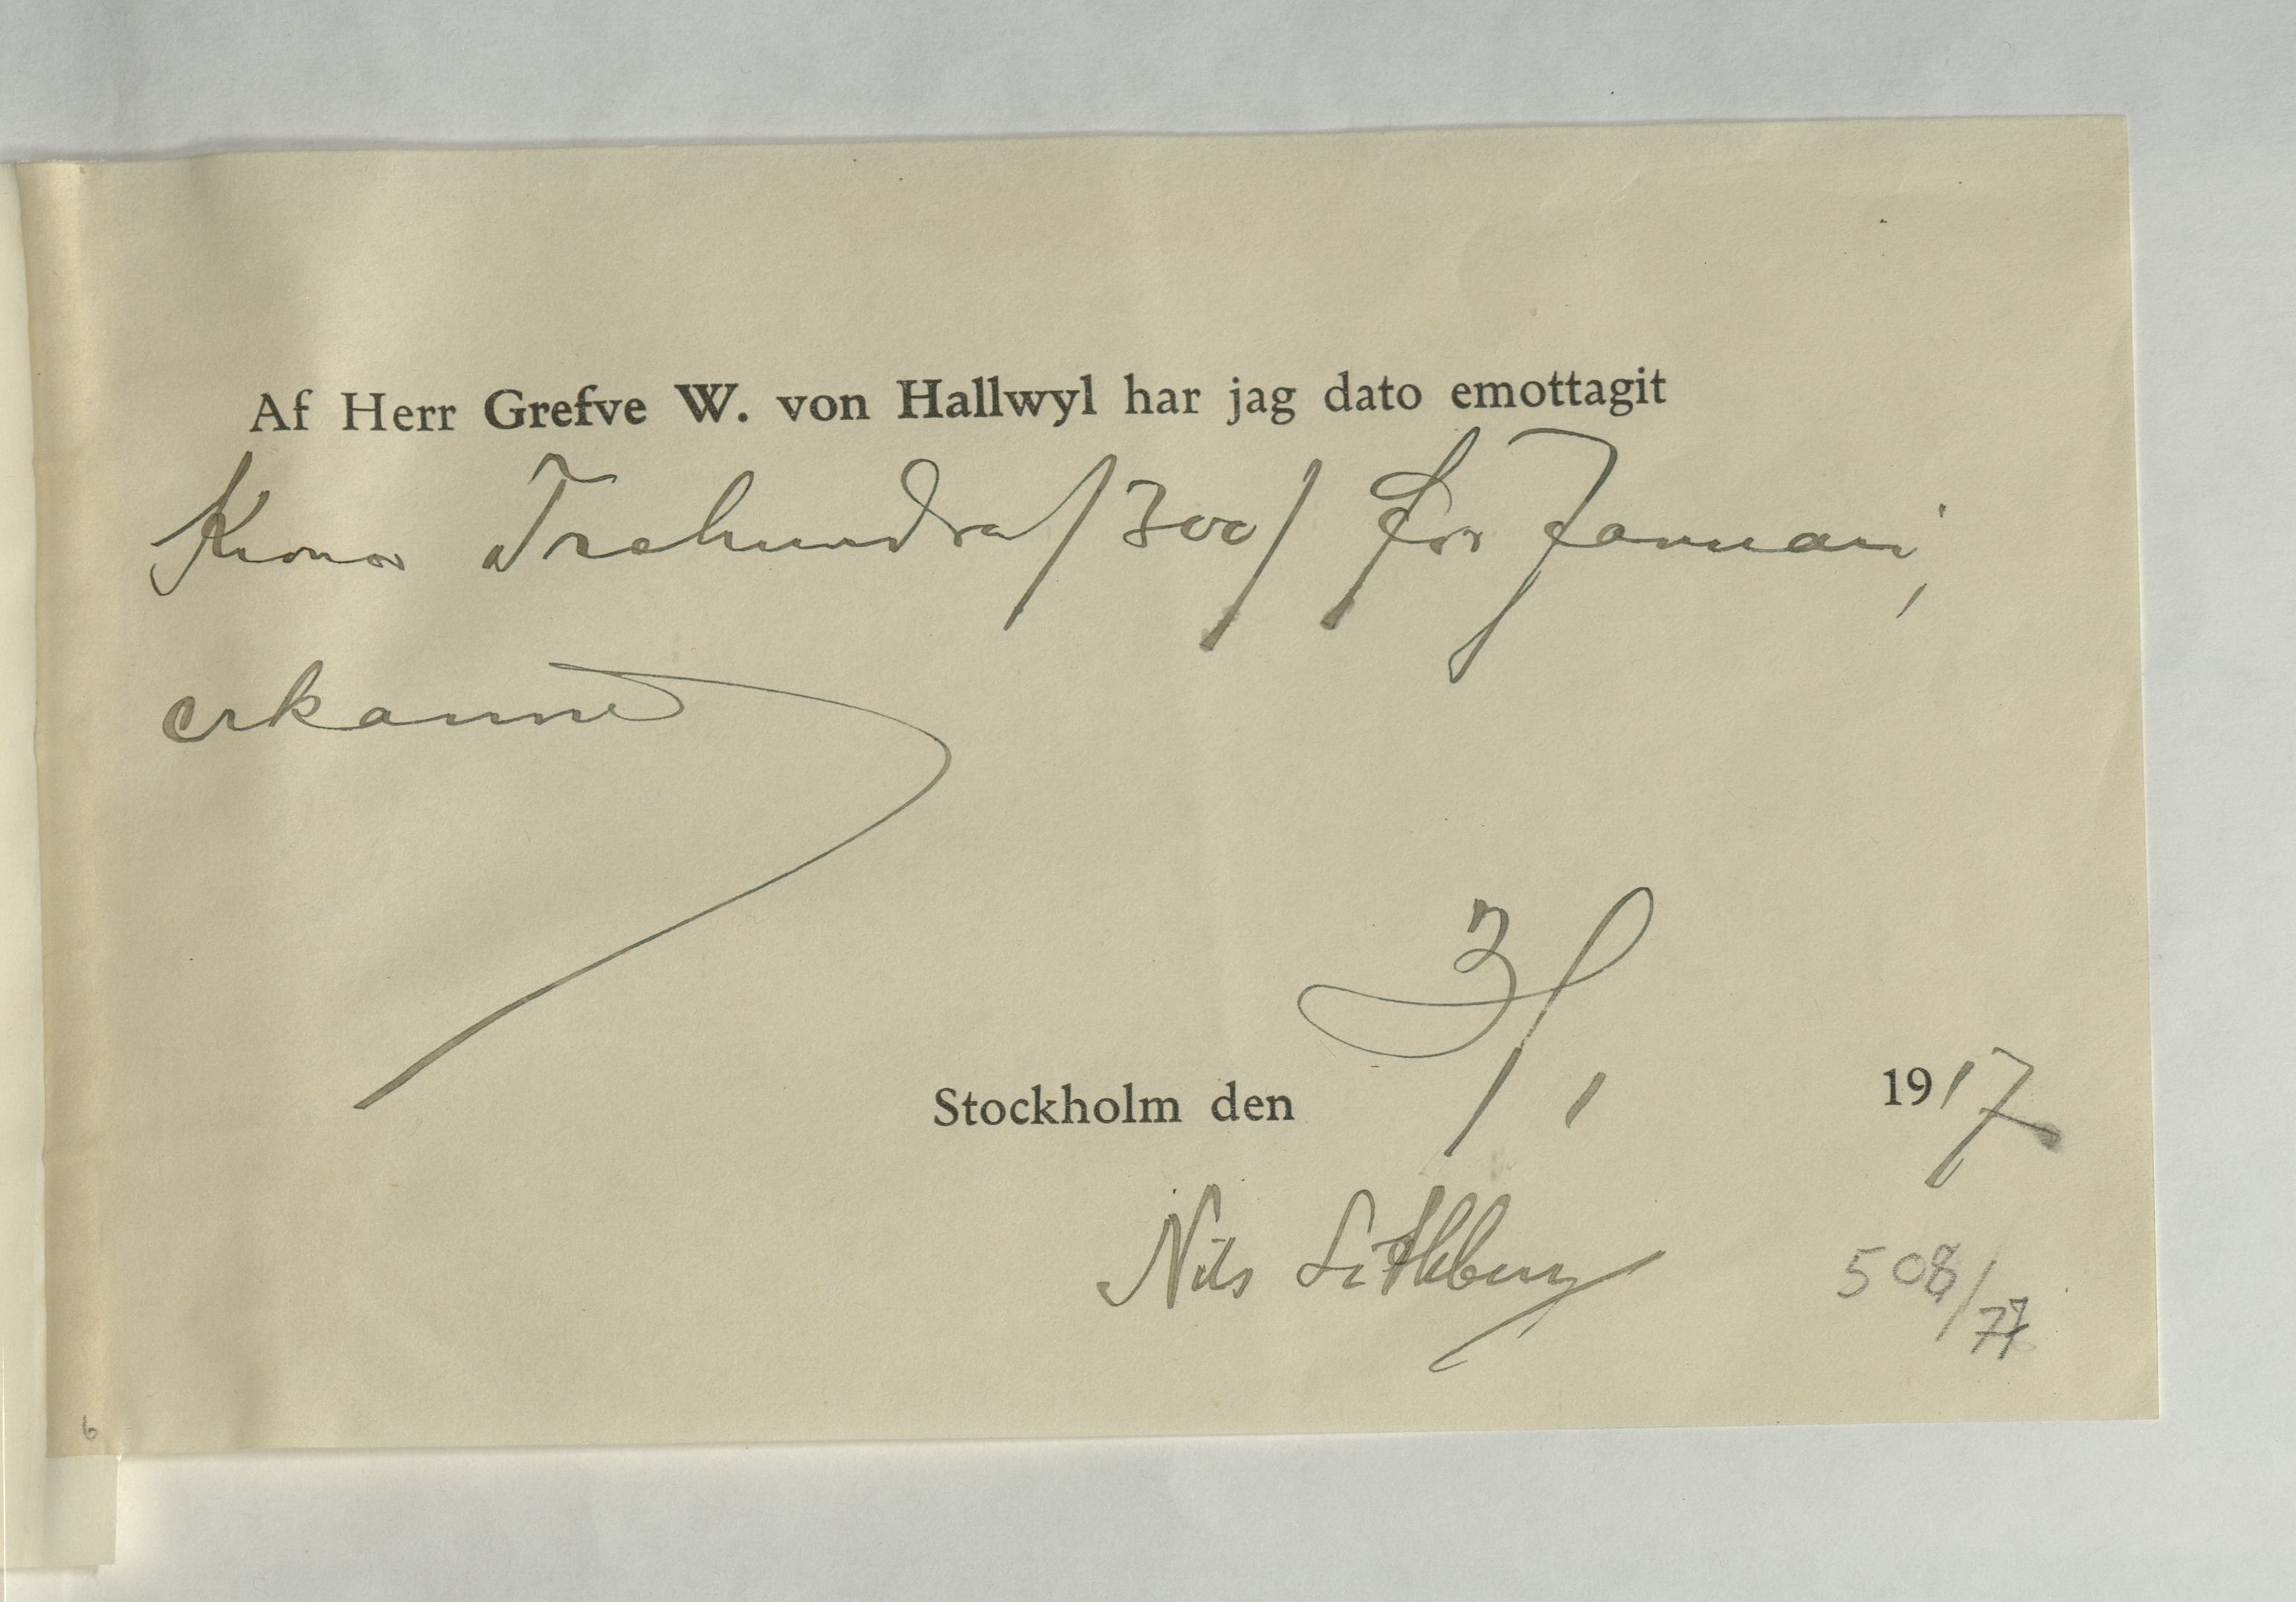 Af Herr Grefve W. von Hallwyl har jag dato emottagit
Kronor Trehundra /300/ för Januari,
erkännes
Stockholm den 3/1 1917
Nils Lithberg
508/77
6